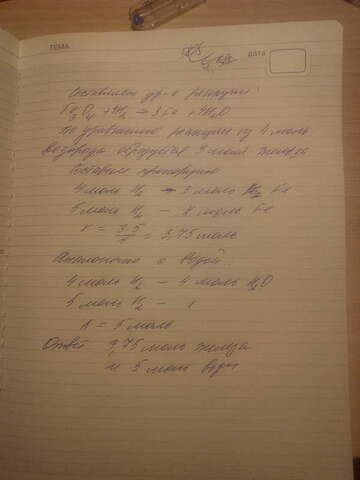 ТЕМА
ДАТА
Составляем ур-е реакции:
Fe3O4 + 4H2 → 3Fe + 4H2O
По уравнению реакции из 4 моль
водорода образуется 3 моля железа
Составим пропорцию
4 моль H2 - 3 моль Fe
5 моль H2 - x моль Fe
x = 3·5/4 = 3,75 моль
Аналогично с водой:
4 моль H2 - 4 моль H2O
5 моль H2 - x
x = 5 моль
Ответ 3,75 моль железа
и 5 моль воды